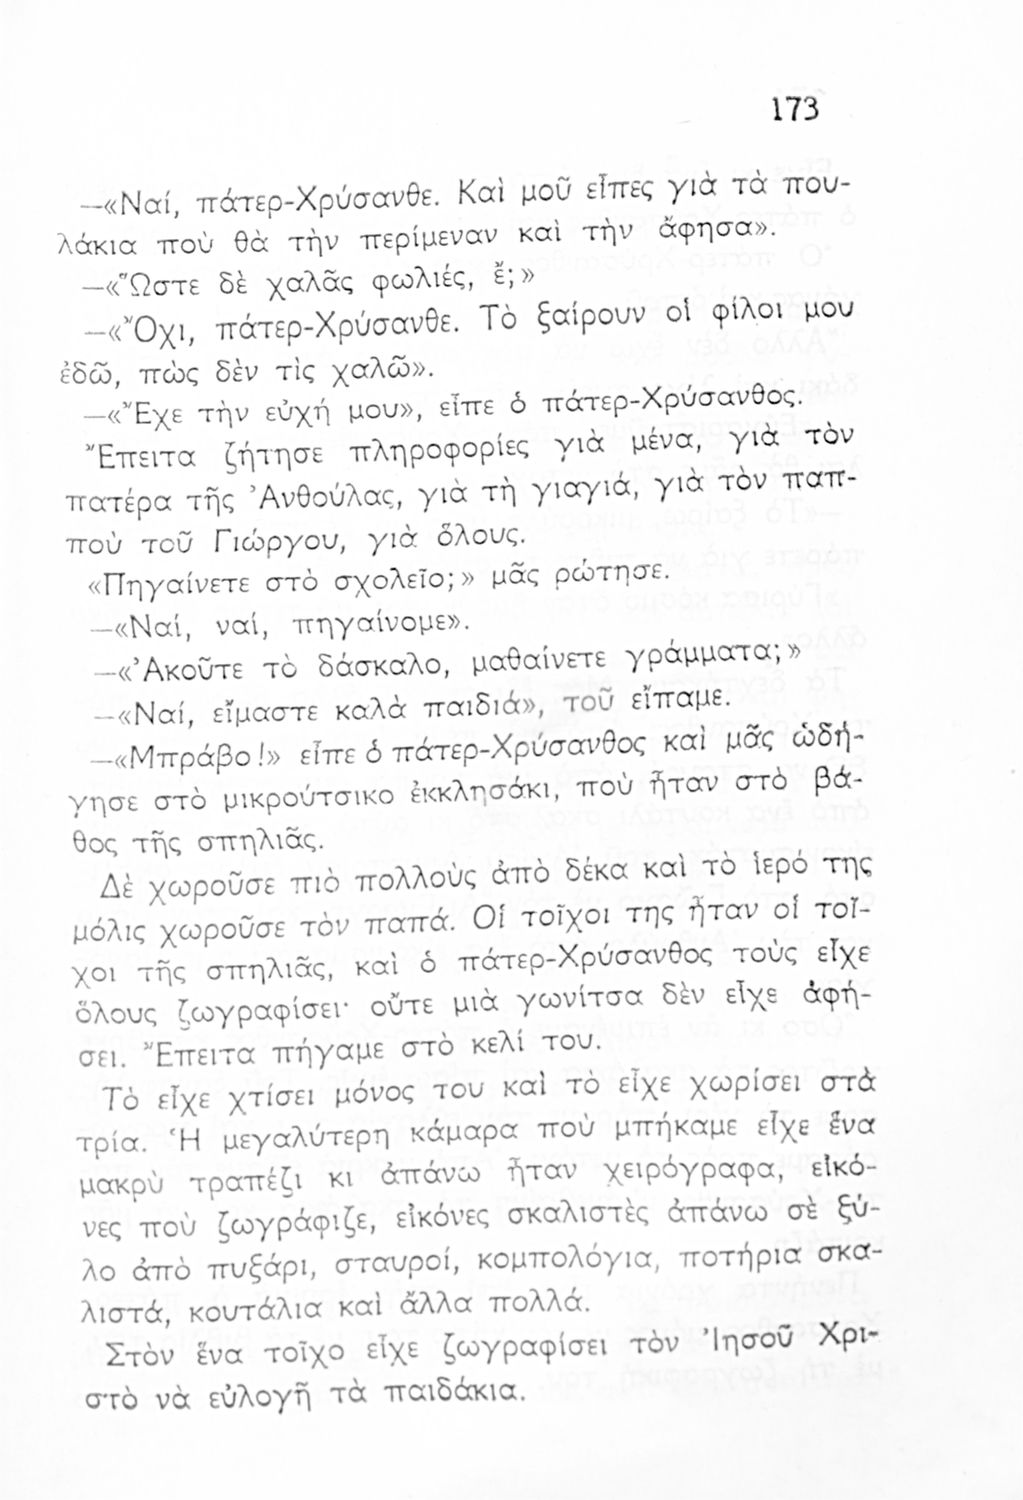 173
—«Ναί, πάτερ-Χρύσανθε. Καὶ μοῦ εἶπες γιὰ τὰ που-
λάκια ποὺ θὰ τὴν περίμεναν καὶ τὴν ἄφησα».
—«Ὥστε δὲ χαλᾶς φωλιές, ἔ;»
—«Ὄχι, πάτερ-Χρύσανθε. Τὸ ξαίρουν οἱ φίλοι μου
ἐδῶ, πὼς δὲν τὶς χαλῶ».
—«Ἔχε τὴν εὐχή μου», εἶπε ὁ πάτερ-Χρύσανθος.
Ἔπειτα ζήτησε πληροφορίες γιὰ μένα, γιὰ τὸν
πατέρα τῆς Ἀνθούλας, γιὰ τὴ γιαγιά, γιὰ τὸν παπ-
ποὺ τοῦ Γιώργου, γιὰ ὅλους.
«Πηγαίνετε στὸ σχολεῖο;» μᾶς ρώτησε.
—«Ναί, ναί, πηγαίνομε».
—«Ἀκοῦτε τὸ δάσκαλο, μαθαίνετε γράμματα;»
—«Ναί, εἴμαστε καλὰ παιδιά», τοῦ εἴπαμε.
—«Μπράβο!» εἶπε ὁ πάτερ-Χρύσανθος καὶ μᾶς ὡδή-
γησε στὸ μικρούτσικο ἐκκλησάκι, ποὺ ἦταν στὸ βά-
θος τῆς σπηλιᾶς.
Δὲ χωροῦσε πιὸ πολλοὺς ἀπὸ δέκα καὶ τὸ ἱερό της
μόλις χωροῦσε τὸν παπά. Οἱ τοῖχοι της ἦταν οἱ τοῖ-
χοι τῆς σπηλιᾶς, καὶ ὁ πάτερ-Χρύσανθος τοὺς εἶχε
ὅλους ζωγραφίσει· οὔτε μιὰ γωνίτσα δὲν εἶχε ἀφή-
σει. Ἔπειτα πήγαμε στὸ κελί του.
Τὸ εἶχε χτίσει μόνος του καὶ τὸ εἶχε χωρίσει στὰ
τρία. Ἡ μεγαλύτερη κάμαρα ποὺ μπήκαμε εἶχε ἕνα
μακρὺ τραπέζι κι ἀπάνω ἦταν χειρόγραφα, εἰκό-
νες ποὺ ζωγράφιζε, εἰκόνες σκαλιστὲς ἀπάνω σὲ ξύ-
λο ἀπὸ πυξάρι, σταυροί, κομπολόγια, ποτήρια σκα-
λιστά, κουτάλια καὶ ἄλλα πολλά.
Στὸν ἕνα τοῖχο εἶχε ζωγραφίσει τὸν Ἰησοῦ Χρι-
στὸ νὰ εὐλογῆ τὰ παιδάκια.